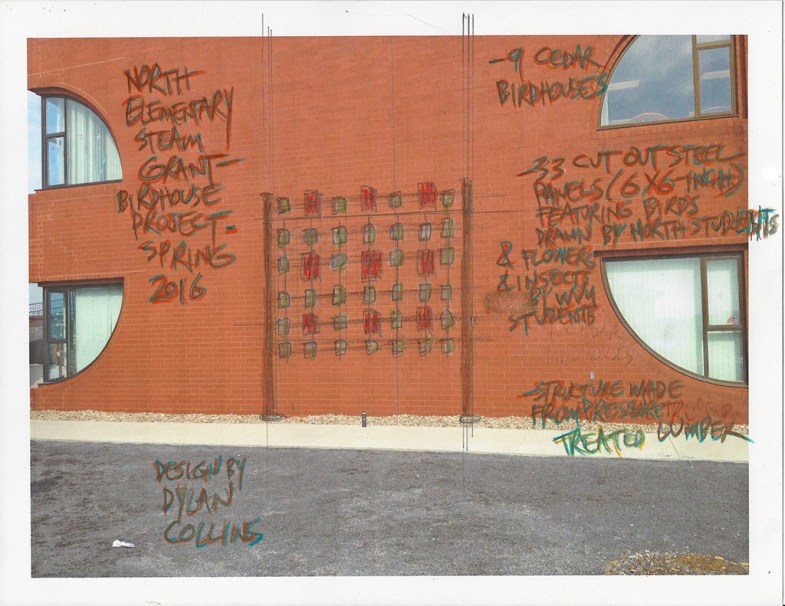 NORTH
ELEMENTARY
STEAM
GRANT-
BIRDHOUSE
PROJECT-
SPRING
2016
-9 CEDAR
BIRDHOUSES
-33 CUT OUT STEEL
PANELS (6X6-INCH)
FEATURING BIRDS
DRAWN BY NORTH STUDENTS
& FLOWERS
& INSECTS
BY WVU
STUDENTS
-STRUCTURE MADE
FROM PRESSURE
TREATED LUMBER
DESIGN BY
DYLAN
COLLINS